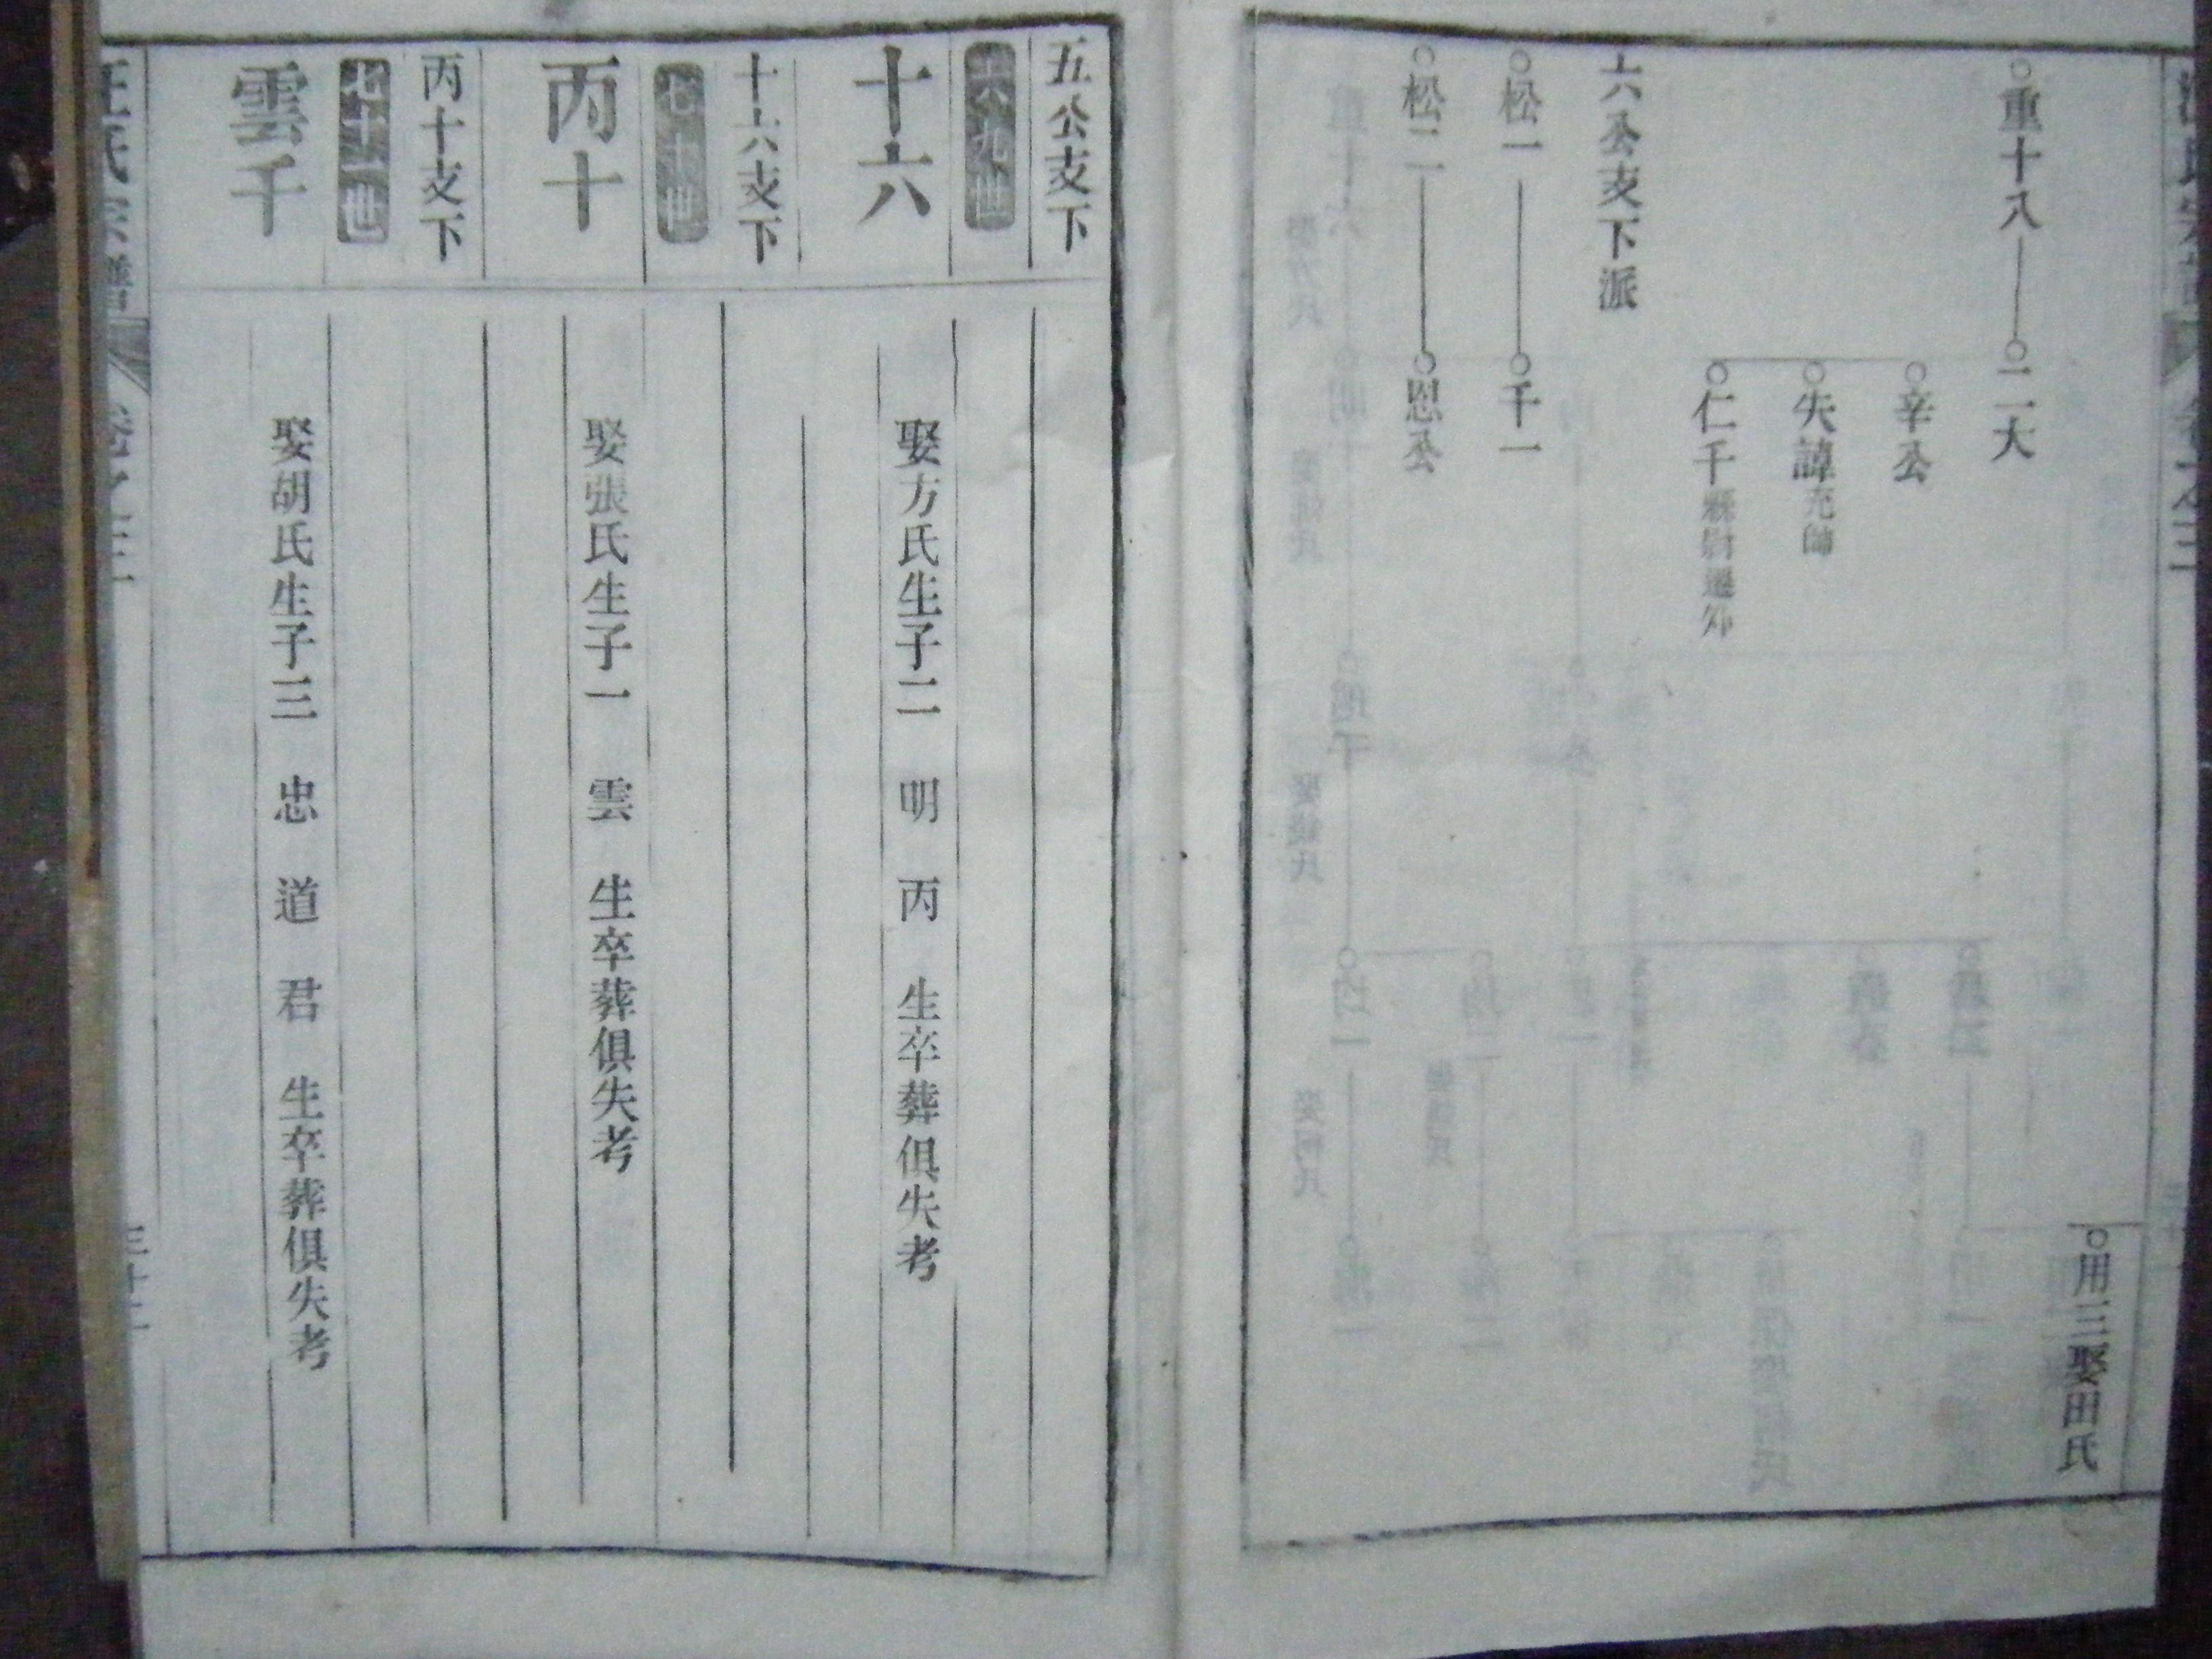 重十八
二大
辛公
失諱充師
仁千縣尉遷外
用三娶田氏
六公支下派
松一
千一
松二
恩公
五公支下
六九世
十六
娶方氏生子二 明 丙 生卒葬俱失考
十六支下
七十世
丙十
娶張氏生子一 雲 生卒葬俱失考
丙十支下
七十一世
雲千
娶胡氏生子三 忠 道 君 生卒葬俱失考
汪氏宗譜
三十二